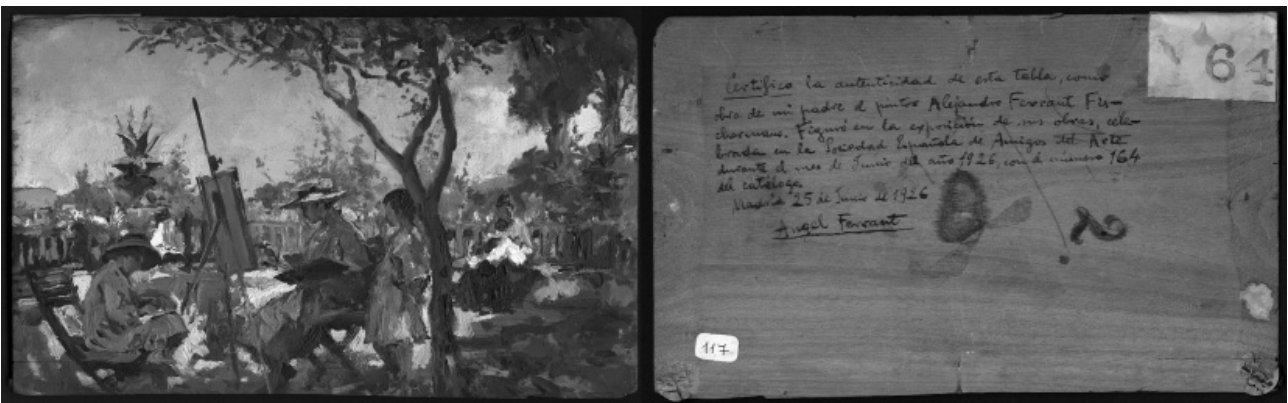 Certifico la autenticidad de esta tabla, como
obra de mi padre el pintor Alejandro Ferrant Fis-
chermans. Figuró en la exposición de sus obras, cele-
brada en la Sociedad Española de Amigos del Arte
durante el mes de Junio del año 1926, con el número 164
del catálogo.
Madrid 25 de Junio de 1926
Angel Ferrant
64
117